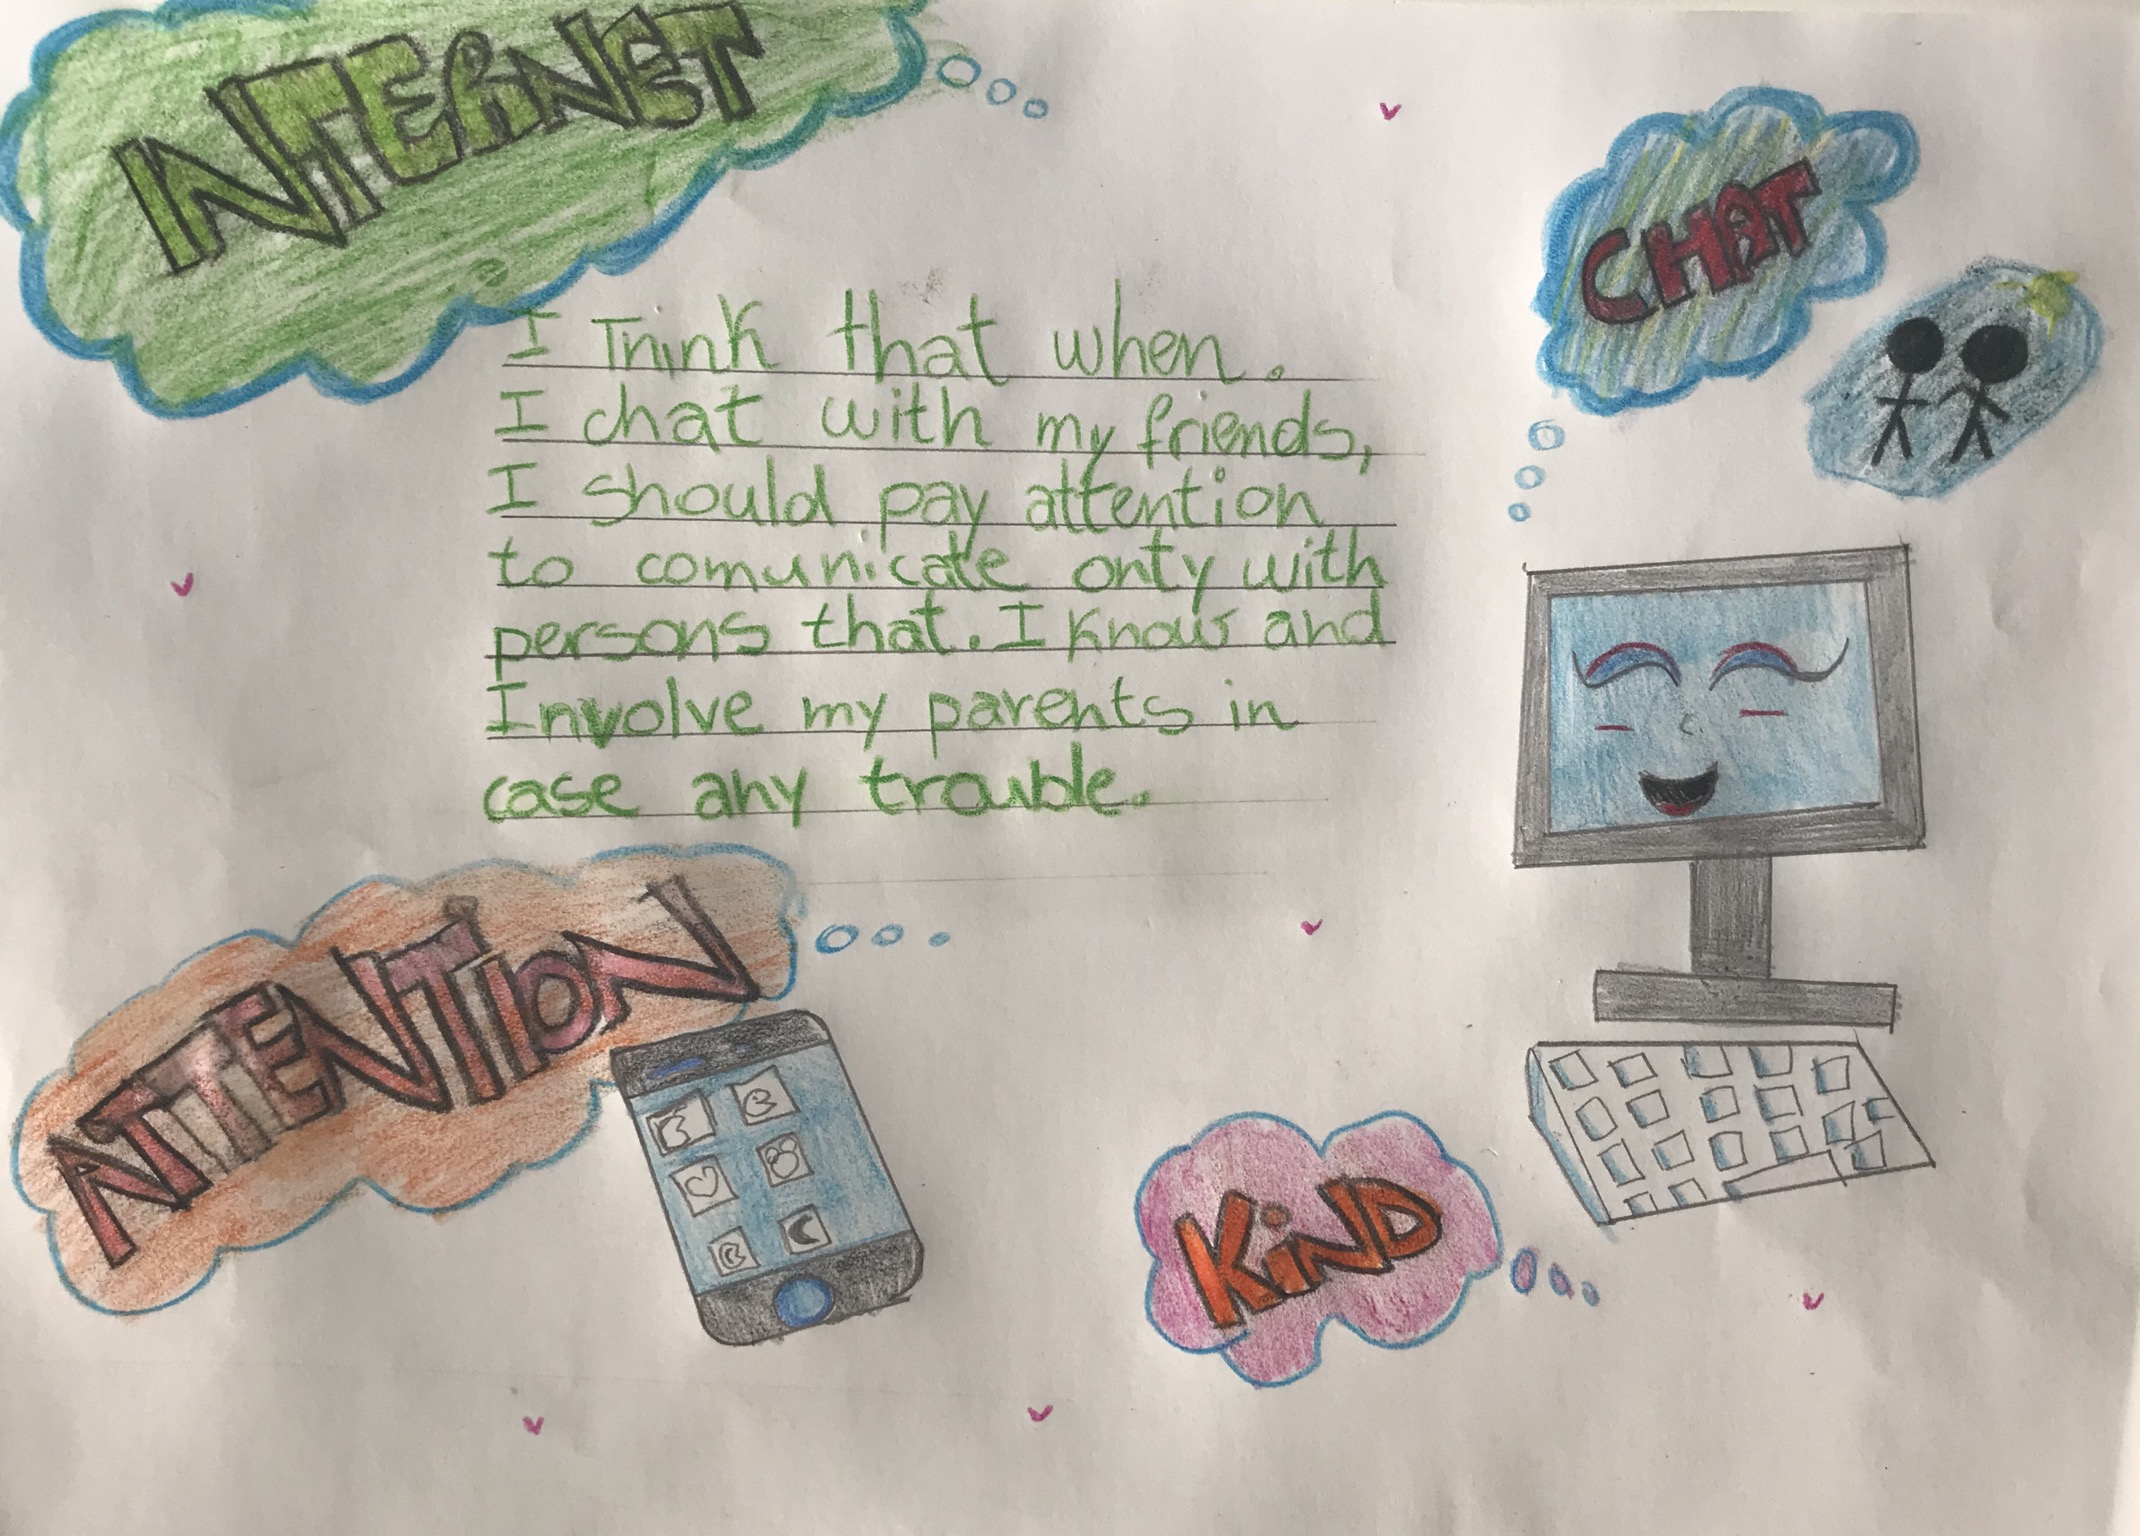 INTERNET
CHAT
I Think that when.
I chat with my friends,
I should pay attention
to comunicate only with
persons that. I know and
Involve my parents in
case any trouble.
ATTENTION
KiND